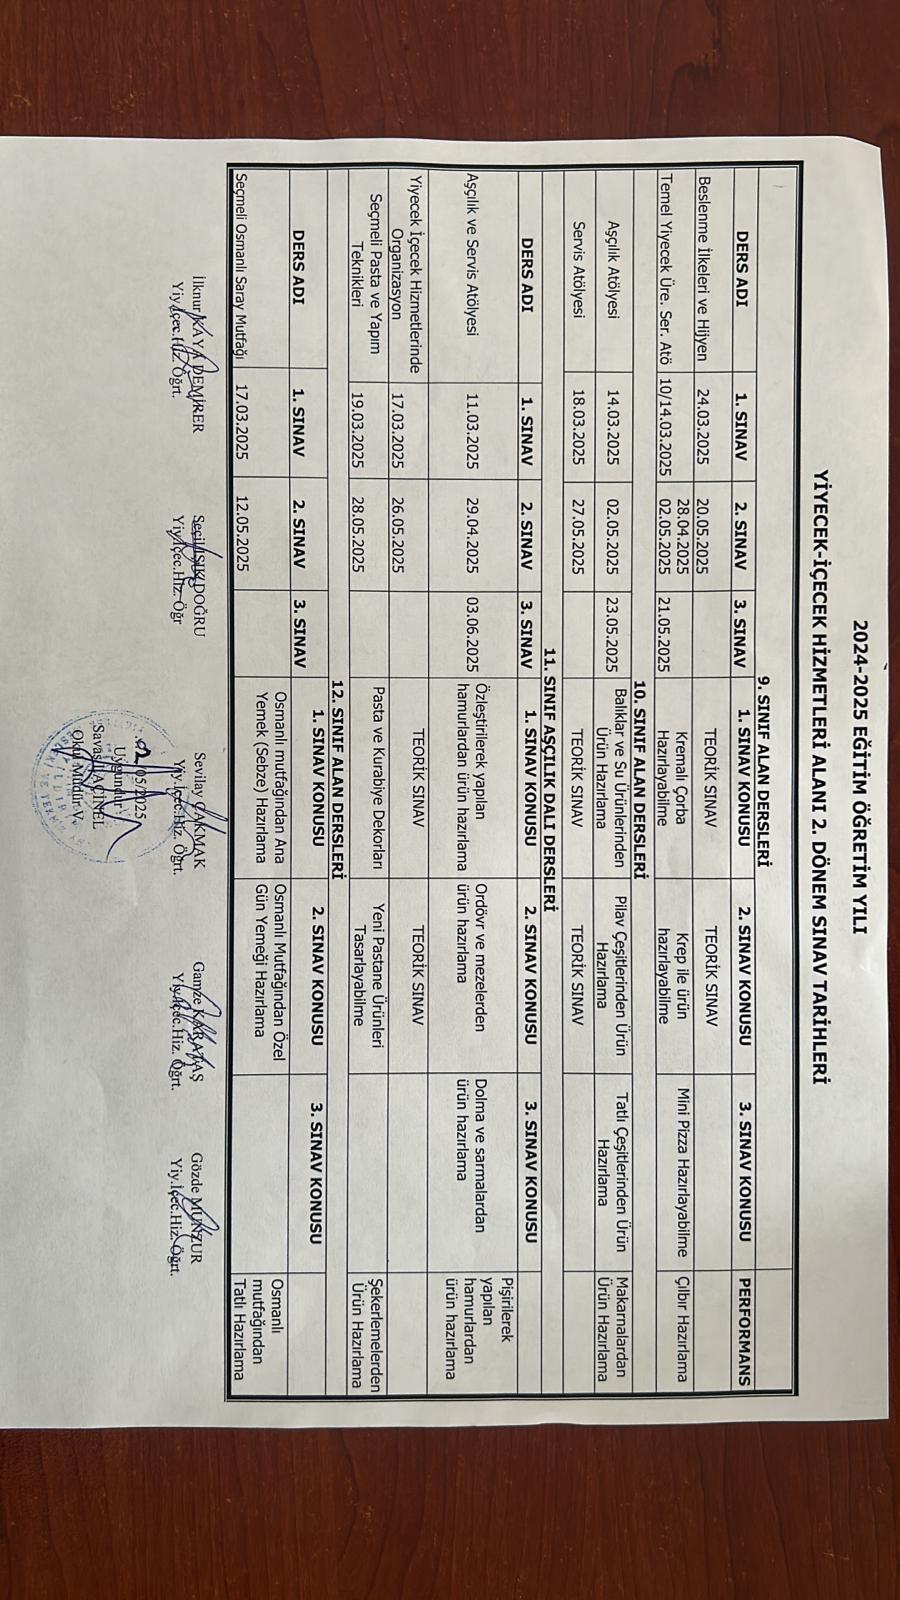 2024-2025 EĞİTİM ÖĞRETİM YILI
YİYECEK-İÇECEK HİZMETLERİ ALANI 2. DÖNEM SINAV TARİHLERİ
9. SINIF ALAN DERSLERİ
DERS ADI 1. SINAV 2. SINAV 3. SINAV 1. SINAV KONUSU 2. SINAV KONUSU 3. SINAV KONUSU PERFORMANS
Beslenme İlkeleri ve Hijyen 24.03.2025 20.05.2025 TEORİK SINAV TEORİK SINAV
Temel Yiyecek Üre. Ser. Atö 10/14.03.2025 28.04.2025 02.05.2025 21.05.2025 Kremalı Çorba Hazırlayabilme Krep ile ürün hazırlayabilme Mini Pizza Hazırlayabilme Çılbır Hazırlama
10. SINIF ALAN DERSLERİ
Aşçılık Atölyesi 14.03.2025 02.05.2025 23.05.2025 Balıklar ve Su Ürünlerinden Ürün Hazırlama Pilav Çeşitlerinden Ürün Hazırlama Tatlı Çeşitlerinden Ürün Hazırlama Makarnalardan Ürün Hazırlama
Servis Atölyesi 18.03.2025 27.05.2025 TEORİK SINAV TEORİK SINAV
11. SINIF AŞÇILIK DALI DERSLERİ
DERS ADI 1. SINAV 2. SINAV 3. SINAV 1. SINAV KONUSU 2. SINAV KONUSU 3. SINAV KONUSU
Aşçılık ve Servis Atölyesi 11.03.2025 29.04.2025 03.06.2025 Özleştirilerek yapılan hamurlardan ürün hazırlama Ordövr ve mezelerden ürün hazırlama Dolma ve sarmalardan ürün hazırlama Pişirilerek yapılan hamurlardan ürün hazırlama
Yiyecek İçecek Hizmetlerinde Organizasyon 17.03.2025 26.05.2025 TEORİK SINAV TEORİK SINAV
Seçmeli Pasta ve Yapım Teknikleri 19.03.2025 28.05.2025 Pasta ve Kurabiye Dekorları Yeni Pastane Ürünleri Tasarlayabilme Şekerlemelerden Ürün Hazırlama
12. SINIF ALAN DERSLERİ
DERS ADI 1. SINAV 2. SINAV 3. SINAV 1. SINAV KONUSU 2. SINAV KONUSU 3. SINAV KONUSU
Seçmeli Osmanlı Saray Mutfağı 17.03.2025 12.05.2025 Osmanlı mutfağından Ana Yemek (Sebze) Hazırlama Osmanlı Mutfağından Özel Gün Yemeği Hazırlama Osmanlı mutfağından Tatlı Hazırlama
İlknur KAYA DEMİRER Seçil IŞIK DOĞRU Sevilay ÇAKMAK Gamze KARATAŞ Gözde MUNZUR
Yiy.İçec.Hiz. Öğrt. Yiy.İçec.Hiz. Öğr Yiy.İçec.Hiz. Öğrt. Yiy.İçec.Hiz. Öğrt. Yiy.İçec.Hiz. Öğrt.
/05/2025
Uygundur
Savaş
Okul Müdür V.